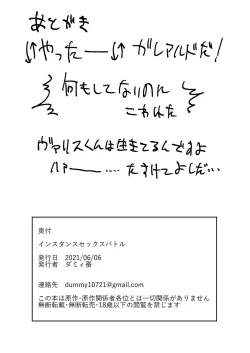 あとがき
↓↑やったー↓↑ ガレアルドだ!
何もしてないのに
こわれた
ヴァリスくんは生きてるんですよ
ハァー…‥ たすけてよしだ…
奥付
インスタンスセックスバトル
発行日 2021/06/06
発行者 ダミィ蚕
連絡先 dummy10721@gmail.com
この本は原作・原作関係者各位とは一切関係がありません
無断転載・無断転売・18歳以下の閲覧を禁じます